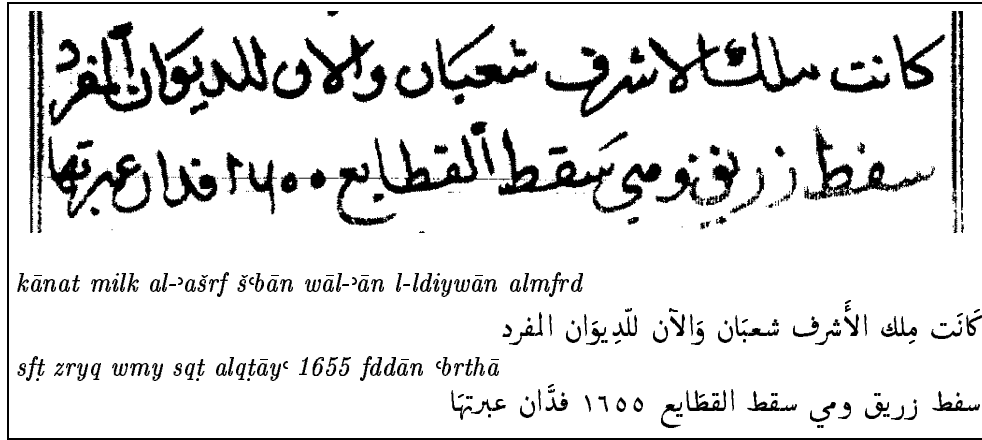 كانت ملك الاشرف شعبَان والان للديوَان المفرد
سفط زريق ومي سَقط القطايع ١٦٥٥ فدان عبرتها
kānat milk al-ʾašrf šʿbān wāl-ʾān l-ldiywān almfrd
كَانَت مِلك الأَشرف شعبَان وَالآن للّدِيوَان المفرد
sfṭ zryq wmy sqṭ alqṭāyʿ 1655 fddān ʿbrthā
سفط زريق ومي سقط القطَايع ١٦٥٥ فدَّان عبرتهَا